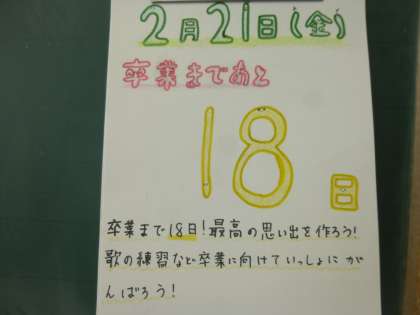 2月21日(金)
卒業まであと
18
日
卒業まで18日!最高の思い出を作ろう!
歌の練習など卒業に向けていっしょにが
んばろう!